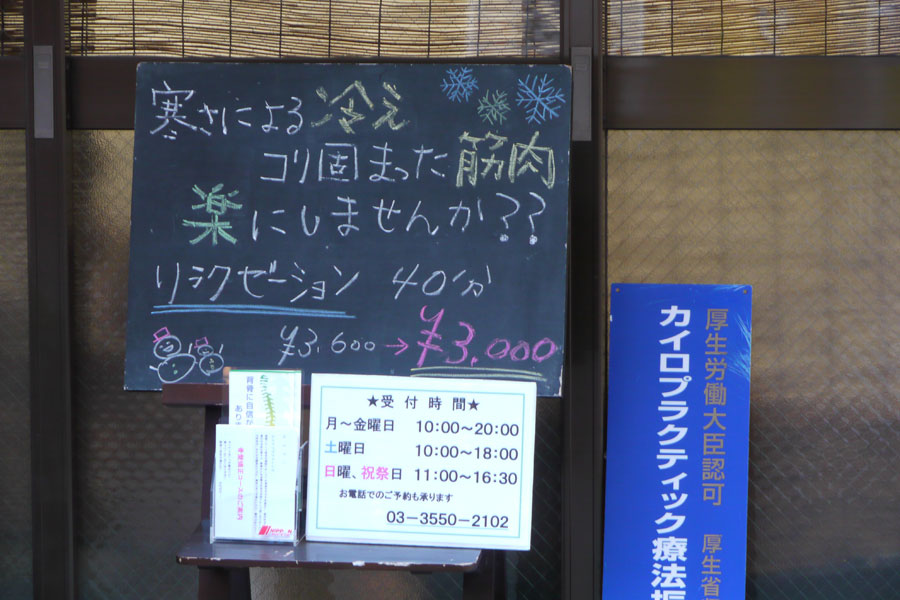 寒さによる冷え
コリ固まった筋肉
楽にしませんか??
リラクゼーション 40分
¥3,600→¥3,000
★受付時間★
月～金曜日 10:00～20:00
土曜日 10:00～18:00
日曜、祝祭日 11:00～16:30
お電話でのご予約も承ります
03-3550-2102
背骨に自信が
厚生労働大臣認可 厚生省
カイロプラクティック療法